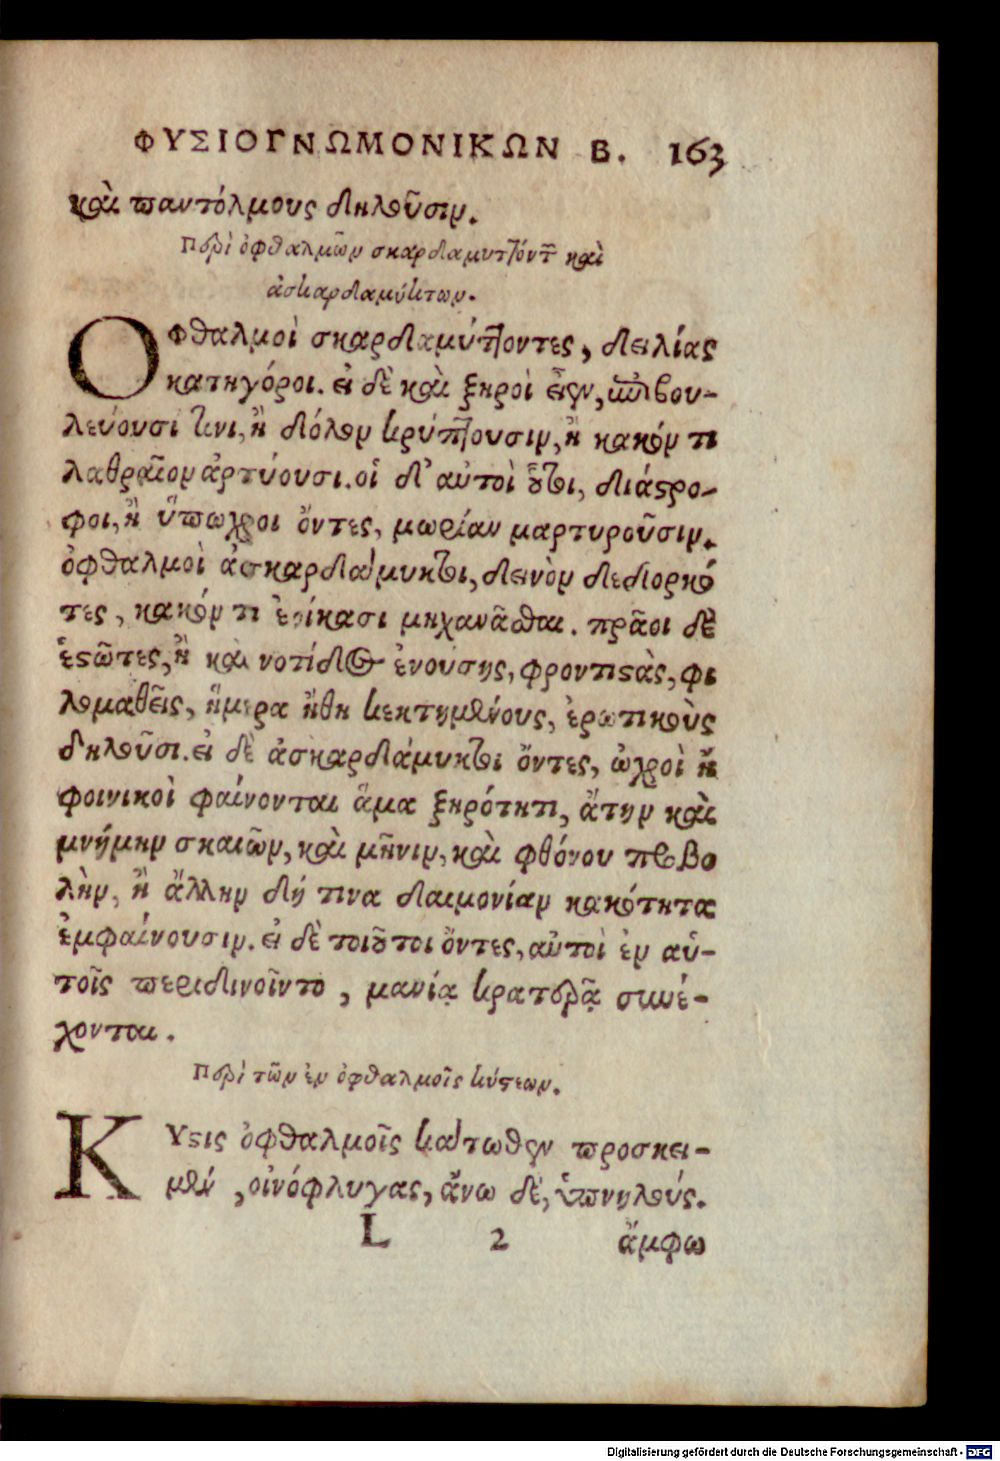 ΦΥΣΙΟΓΝΩΜΟΝΙΚΩΝ Β. 163
καὶ παντόλμους δηλοῦσιν.
Περὶ ὀφθαλμῶν σκαρδαμυττόντ καὶ
ἀσκαρδαμύκτων.
Οφθαλμοὶ σκαρδαμύττοντες, δειλίας
κατηγόροι. εἰ δὲ καὶ ξηροὶ εἶεν, ἐπιβου-
λεύουσί τινι, ἢ δόλον κρύπτουσιν, ἢ κακόν τι
λαθραῖον ἀρτύουσι. οἱ δ' αὐτοὶ οὗτοι, διάστρο-
φοι, ἢ ὕπωχροι ὄντες, μωρίαν μαρτυροῦσιν.
ὀφθαλμοὶ ἀσκαρδάμυκτοι, δεινὸν δεδιορκό
τες, κακόν τι ἐοίκασι μηχανᾶσθαι. πρᾶοι δὲ
ἑστῶτες, ἢ καὶ νοτίδος ἐνούσης, φροντιστὰς, φι
λομαθεῖς, ἥμερα ἤθη κεκτημένους, ἐρωτικοὺς
δηλοῦσι. εἰ δὲ ἀσκαρδάμυκτοι ὄντες, ὠχροὶ ἢ
φοινικοὶ φαίνονται ἅμα ξηρότητι, ἄτην καὶ
μνήμην σκαιῶν, καὶ μῆνιν, καὶ φθόνου προβο
λὴν, ἢ ἄλλην δή τινα δαιμονίαν κακότητα
ἐμφαίνουσιν. εἰ δὲ τοιοῦτοι ὄντες, αὐτοὶ ἐν αὑ-
τοῖς περιδινοῖντο, μανίᾳ κρατερᾷ συνέ-
χονται.
Περὶ τῶν ἐν ὀφθαλμοῖς κύστεων.
Κυστις ὀφθαλμοῖς κάτωθεν προσκει-
μέν , οἰνόφλυγας, ἄνω δέ, ὑπνηλούς.
L 2 ἄμφω
Digitalisierung gefördert durch die Deutsche Forschungsgemeinschaft - DFG